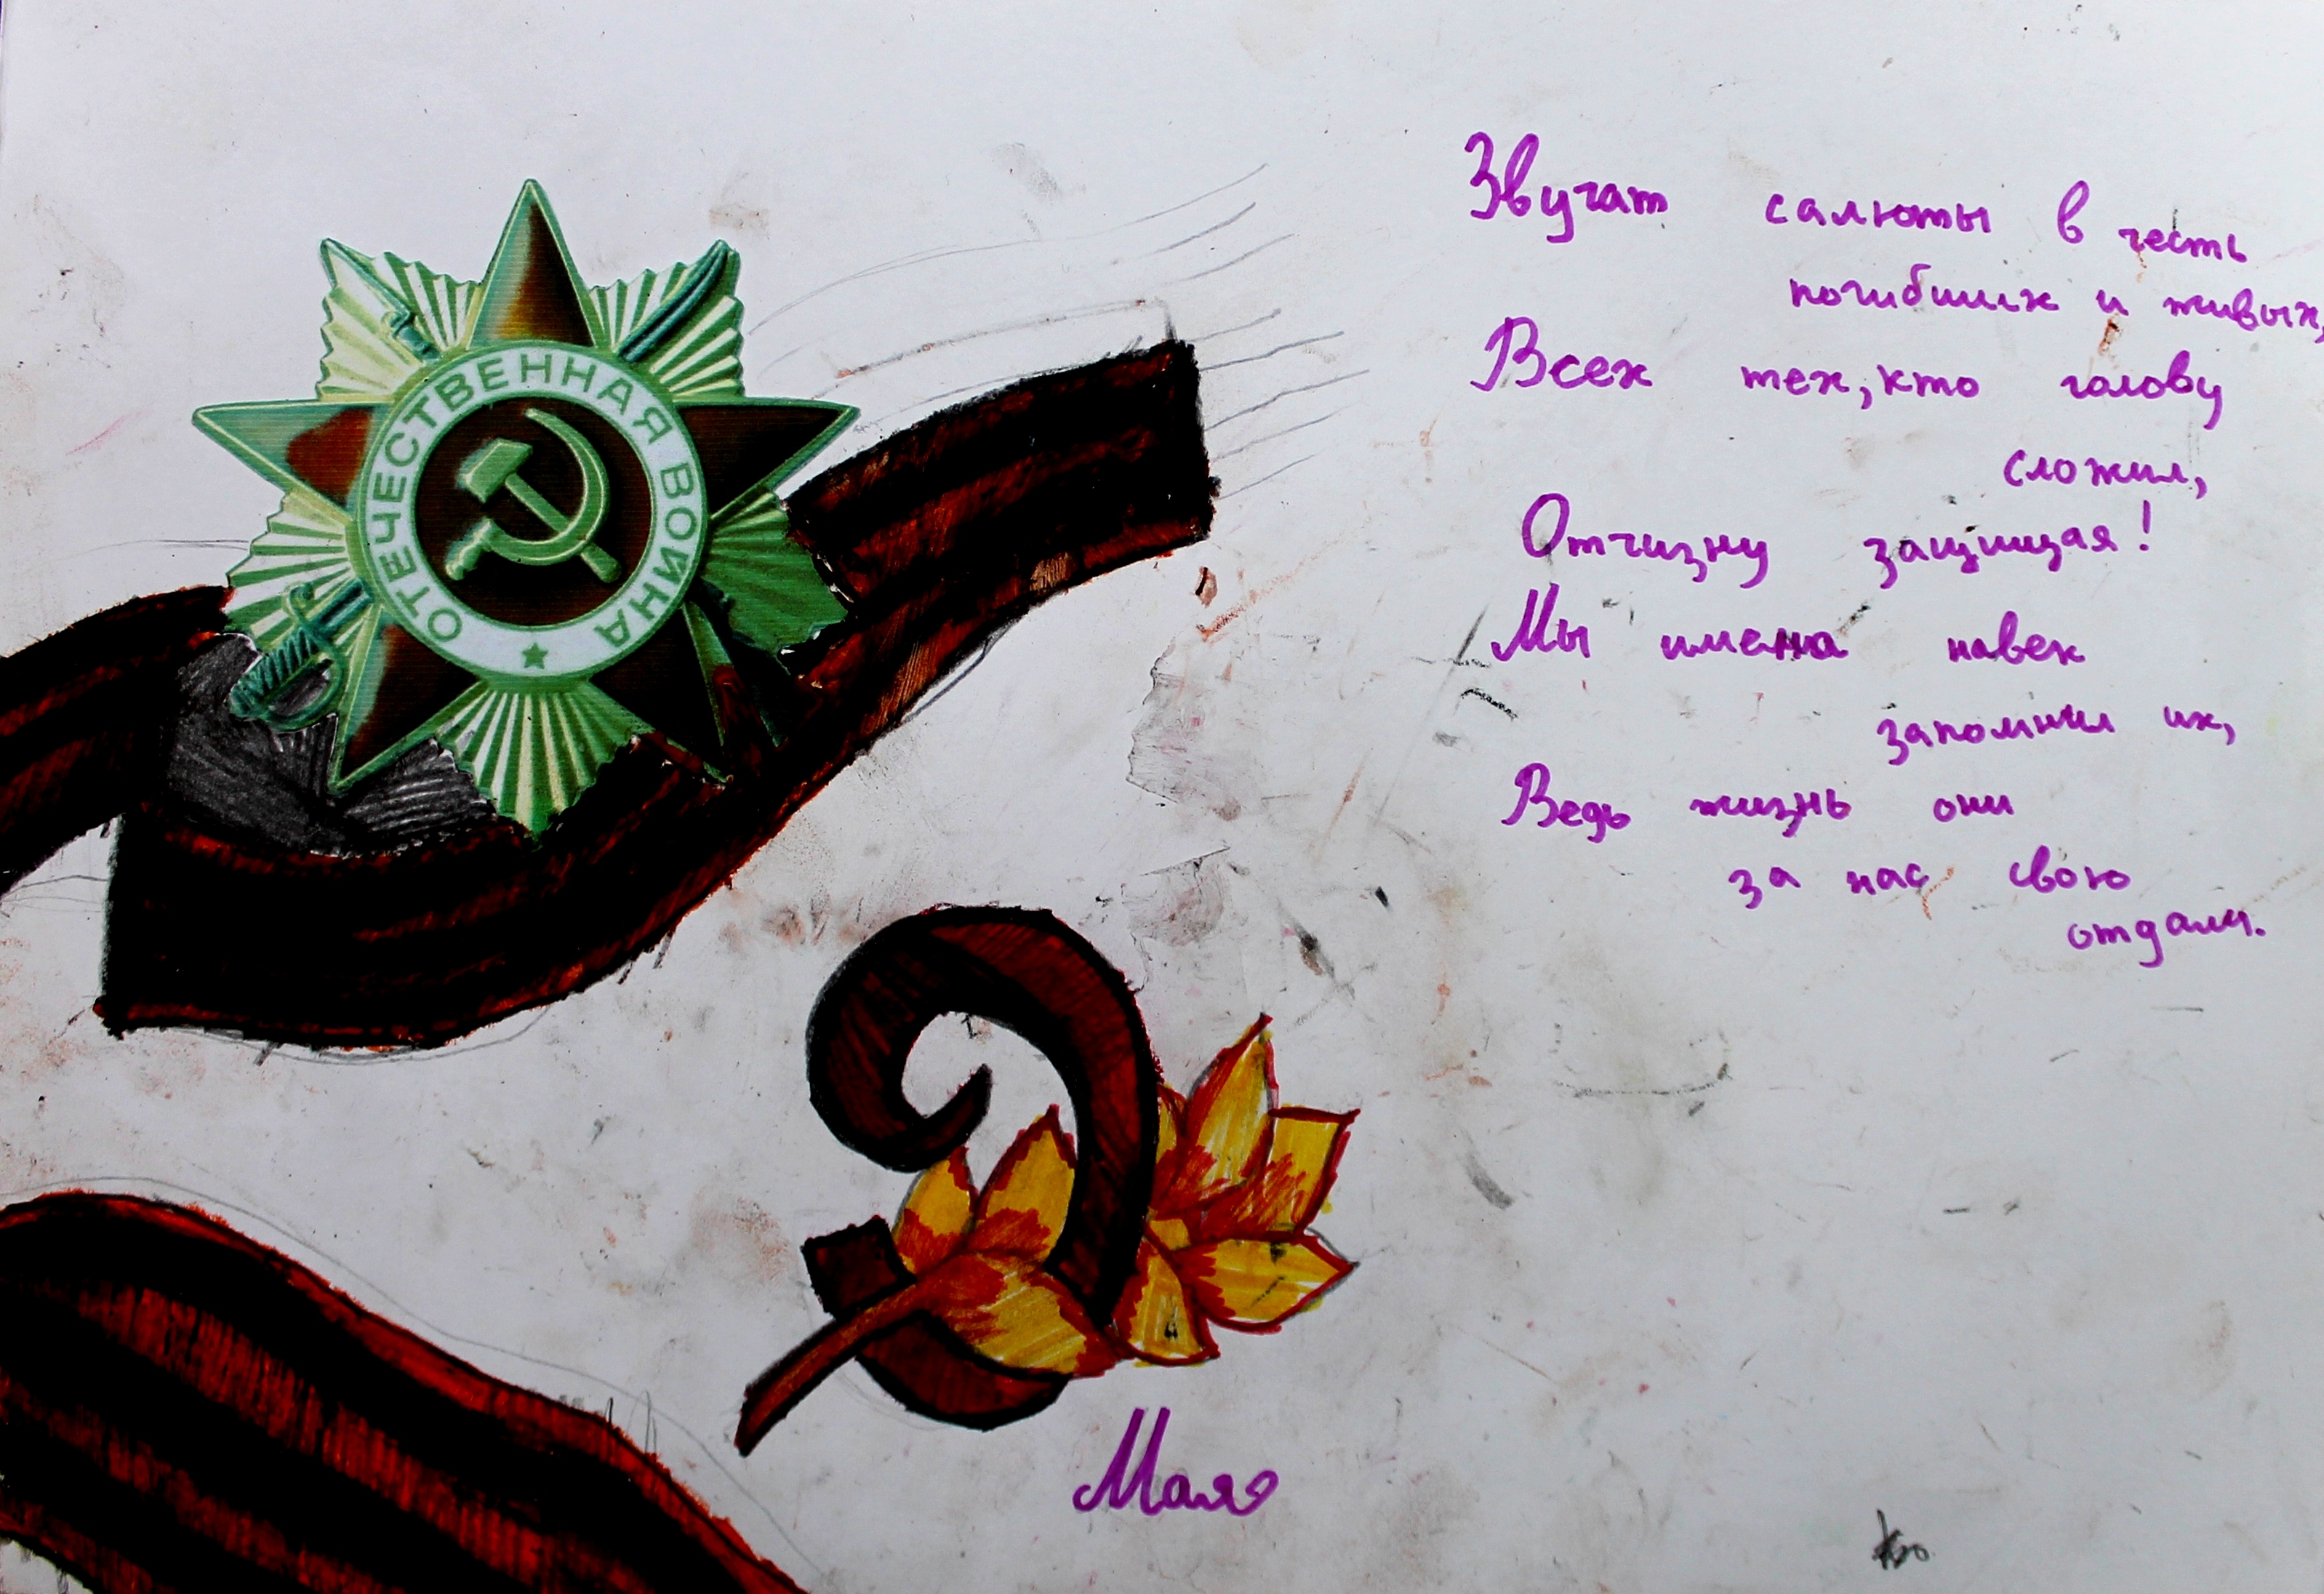 ОТЕЧЕСТВЕННАЯ ВОЙНА
Звучат салюты в честь
погибших и живых,
Всех тех, кто голову
сложил,
Отчизну защищая!
Мы имена навек
запомним их,
Ведь жизнь они
за нас свою
отдали.
9
Мая